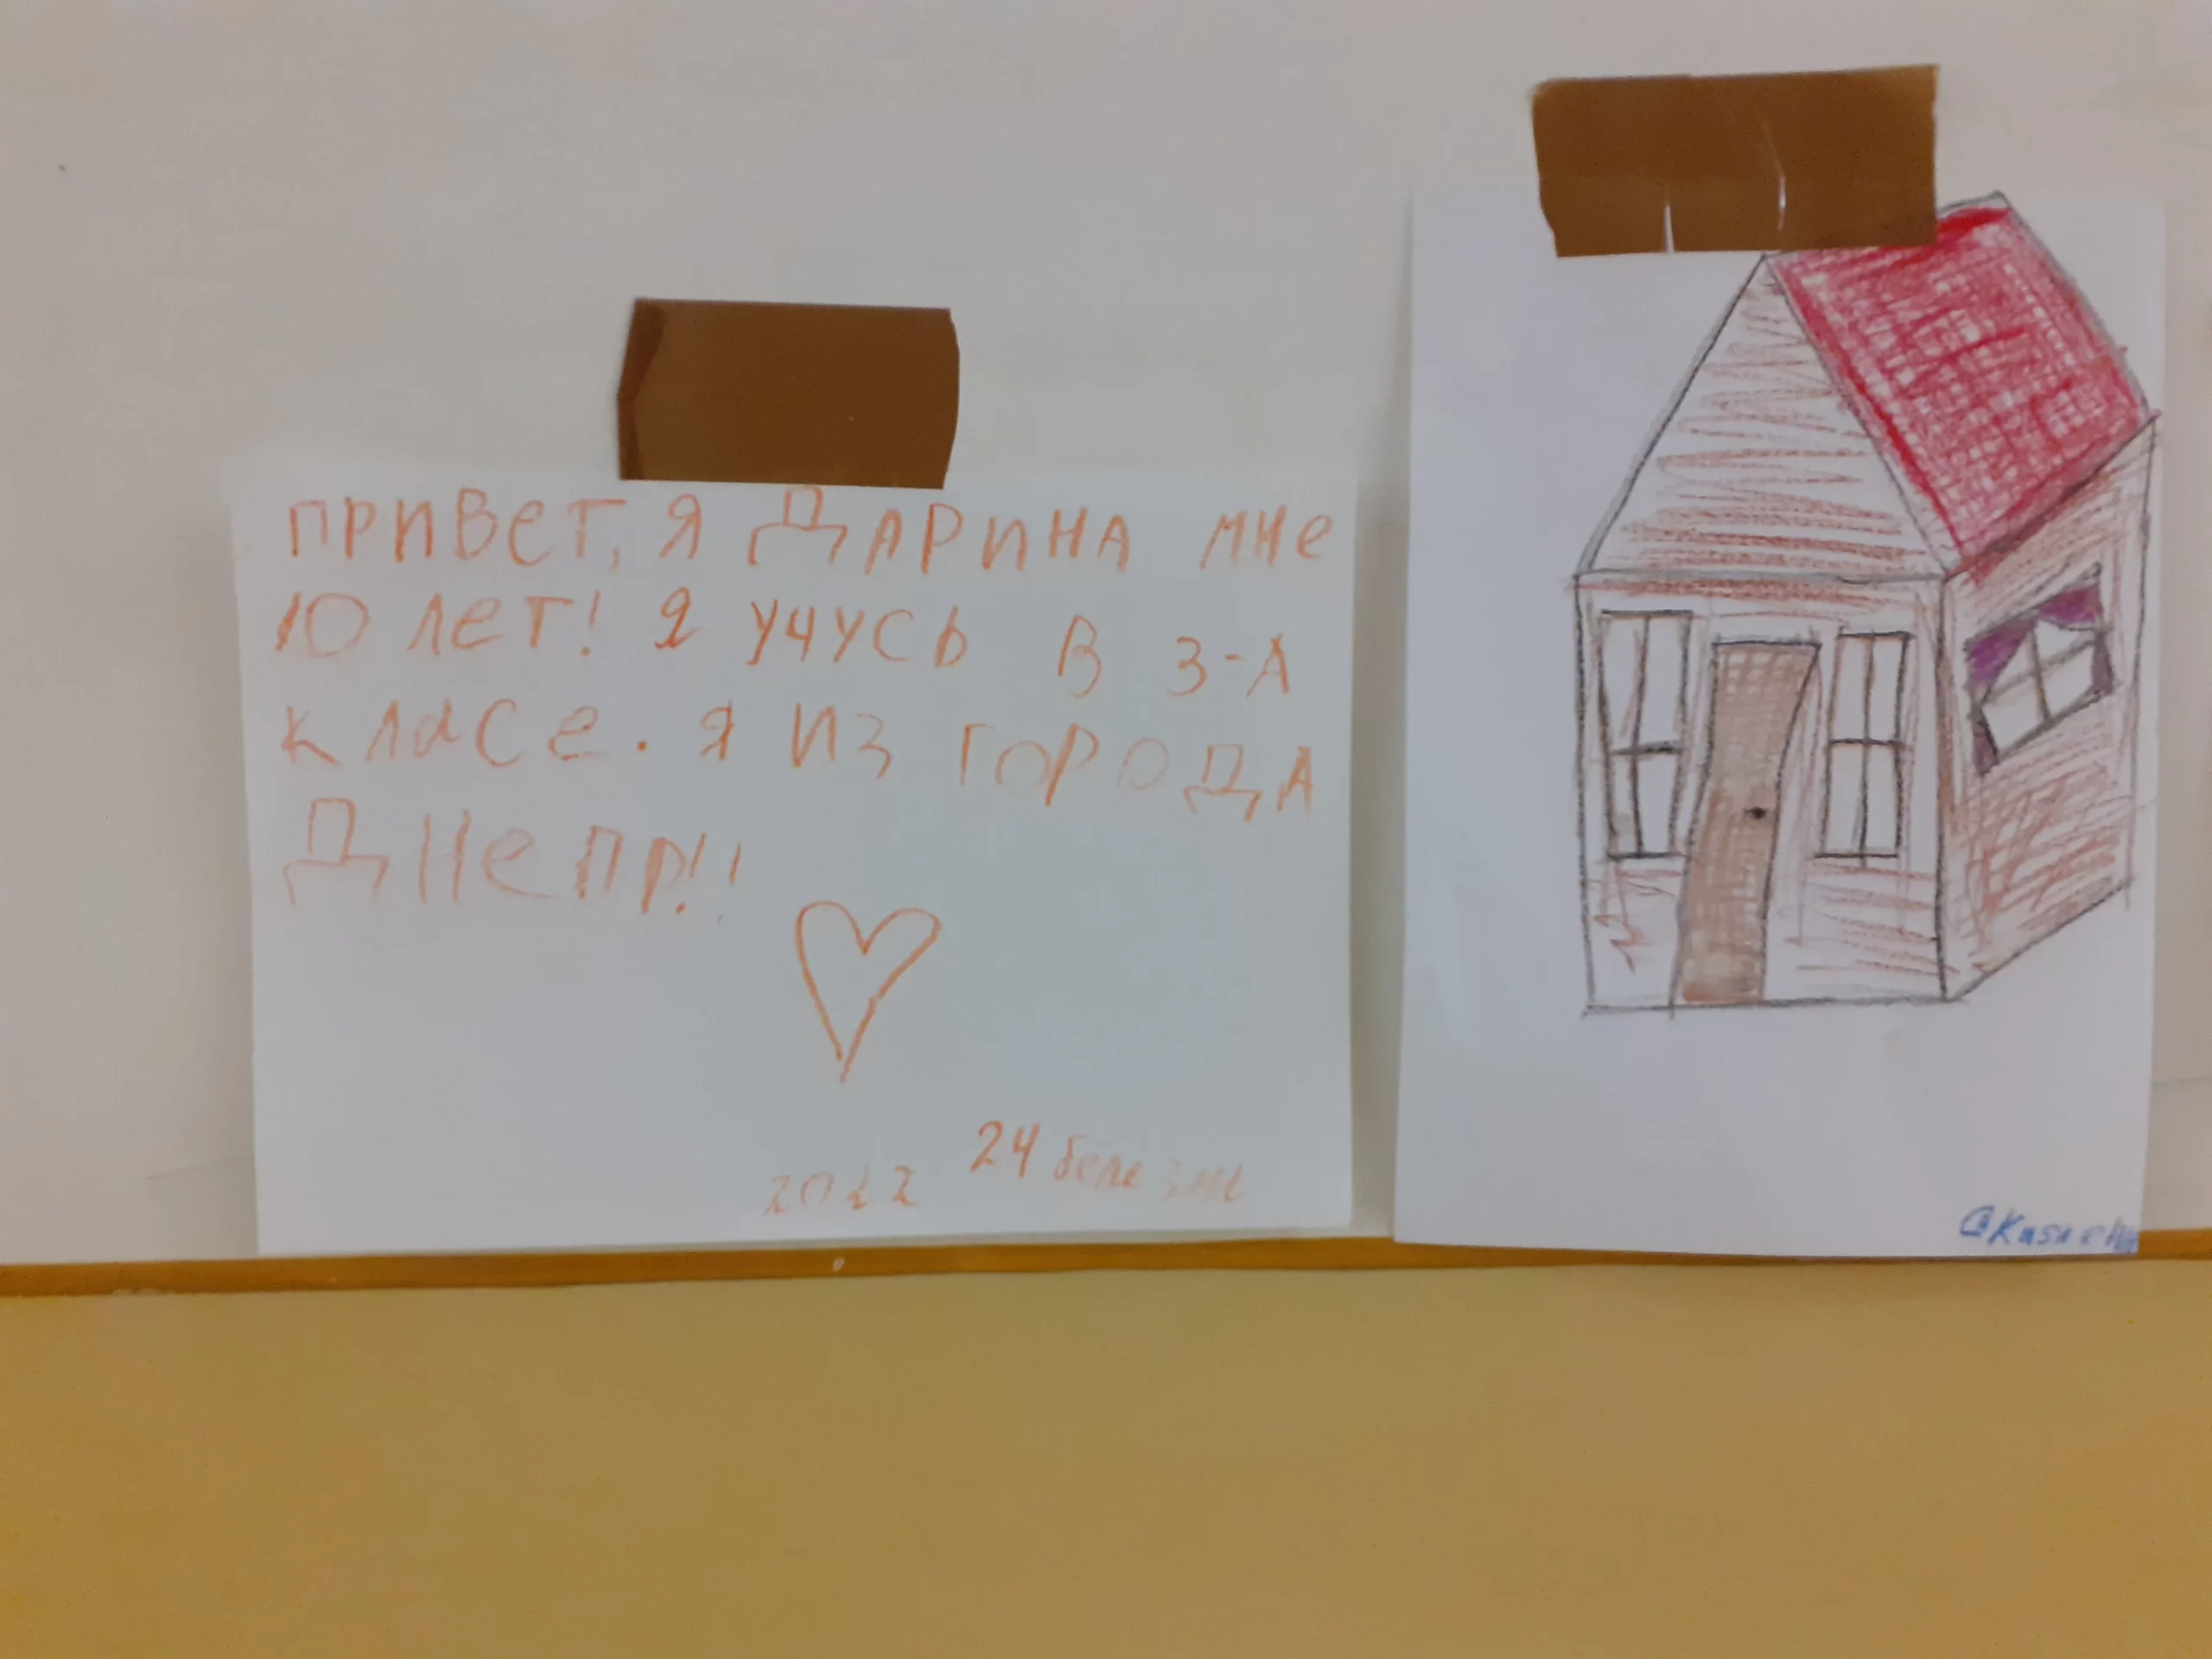 ПРИВЕТ, Я ДАРИНА МНЕ
10 ЛЕТ! Я УЧУСЬ В 3-А
КЛАСЕ. Я ИЗ ГОРОДА
ДНЕПР!!
24 березня
2022